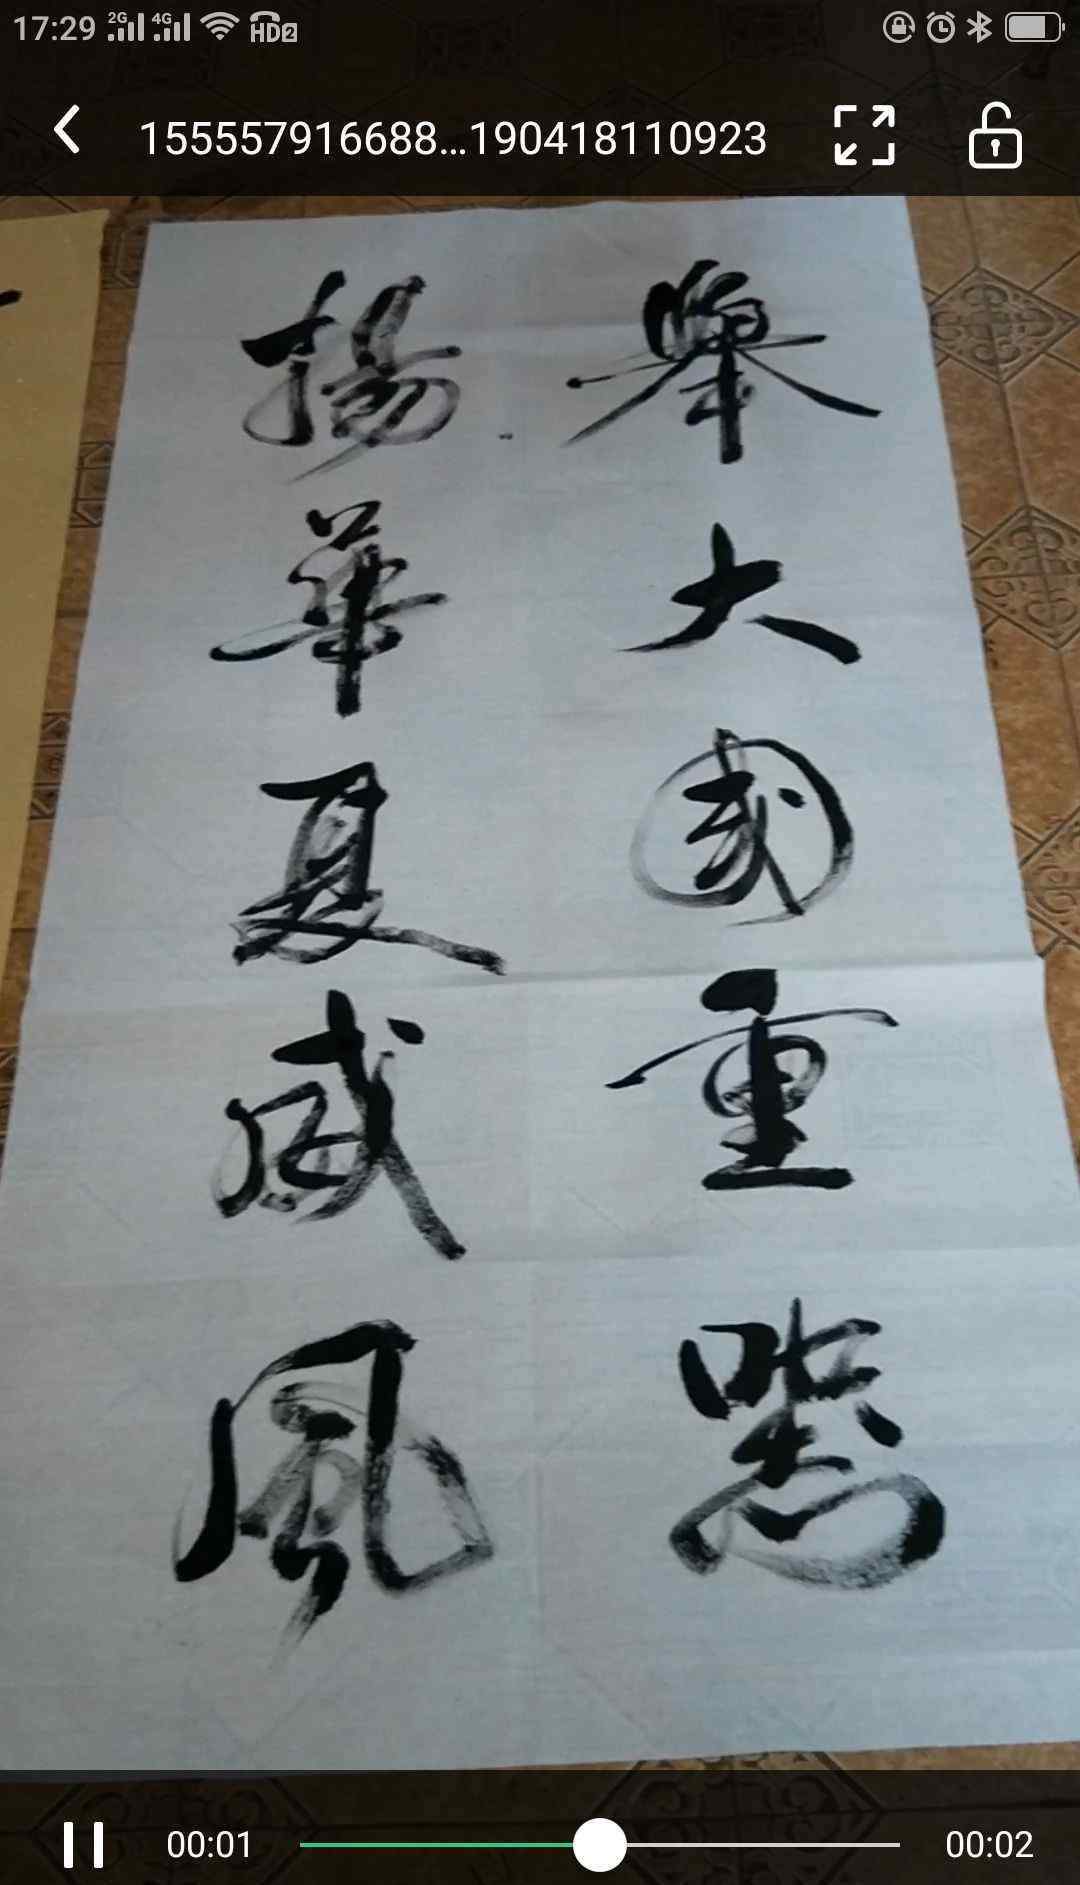 17:29 2G 4G HD2
155557916688...190418110923
舉大國重器
揚華夏威風
00:01 00:02